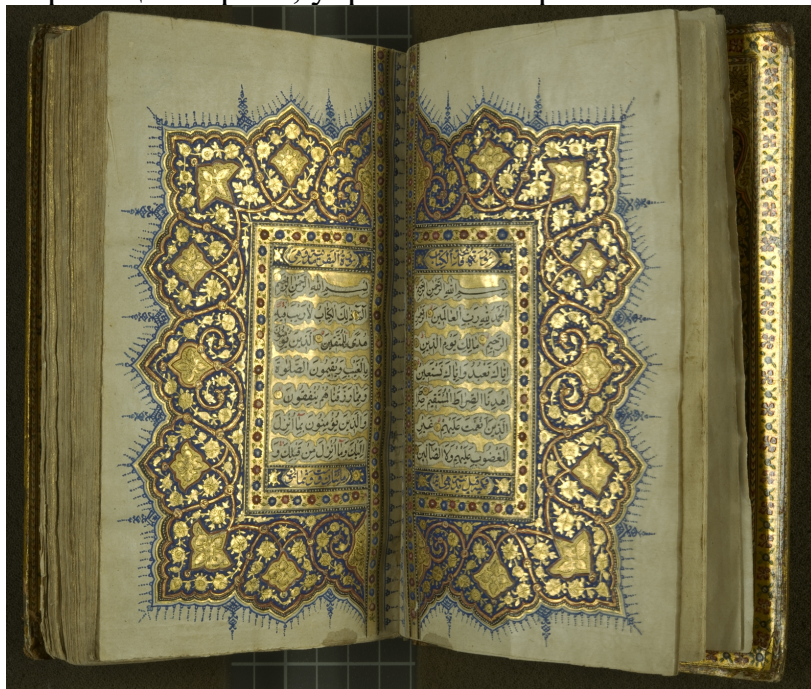 بسم الله الرحمن الرحيم
الحمد لله رب العالمين الرحمن
الرحيم مالك يوم الدين
اياك نعبد واياك نستعين
اهدنا الصراط المستقيم صراط
الذين انعمت عليهم غير
المغضوب عليهم ولا الضالين
بسم الله الرحمن الرحيم
الم ذلك الكتاب لا ريب فيه
هدى للمتقين الذين يؤمنون
بالغيب ويقيمون الصلوة
ومما رزقناهم ينفقون
والذين يؤمنون بما انزل
اليك وما انزل من قبلك و